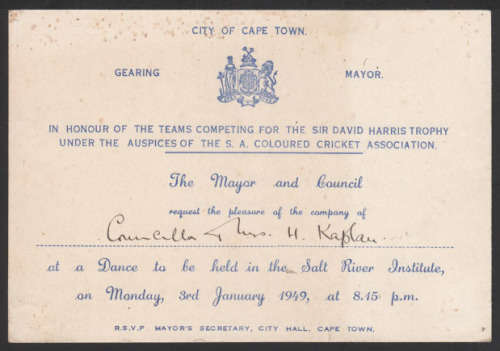 CITY OF CAPE TOWN.
GEARING MAYOR.
IN HONOUR OF THE TEAMS COMPETING FOR THE SIR DAVID HARRIS TROPHY
UNDER THE AUSPICES OF THE S. A. COLOURED CRICKET ASSOCIATION.
The Mayor and Council
request the pleasure of the company of
Councillor & Mrs. H. Kaplan
at a Dance to be held in the Salt River Institute,
on Monday, 3rd January 1949, at 8.15 p.m.
R.S.V.P MAYOR'S SECRETARY, CITY HALL, CAPE TOWN.